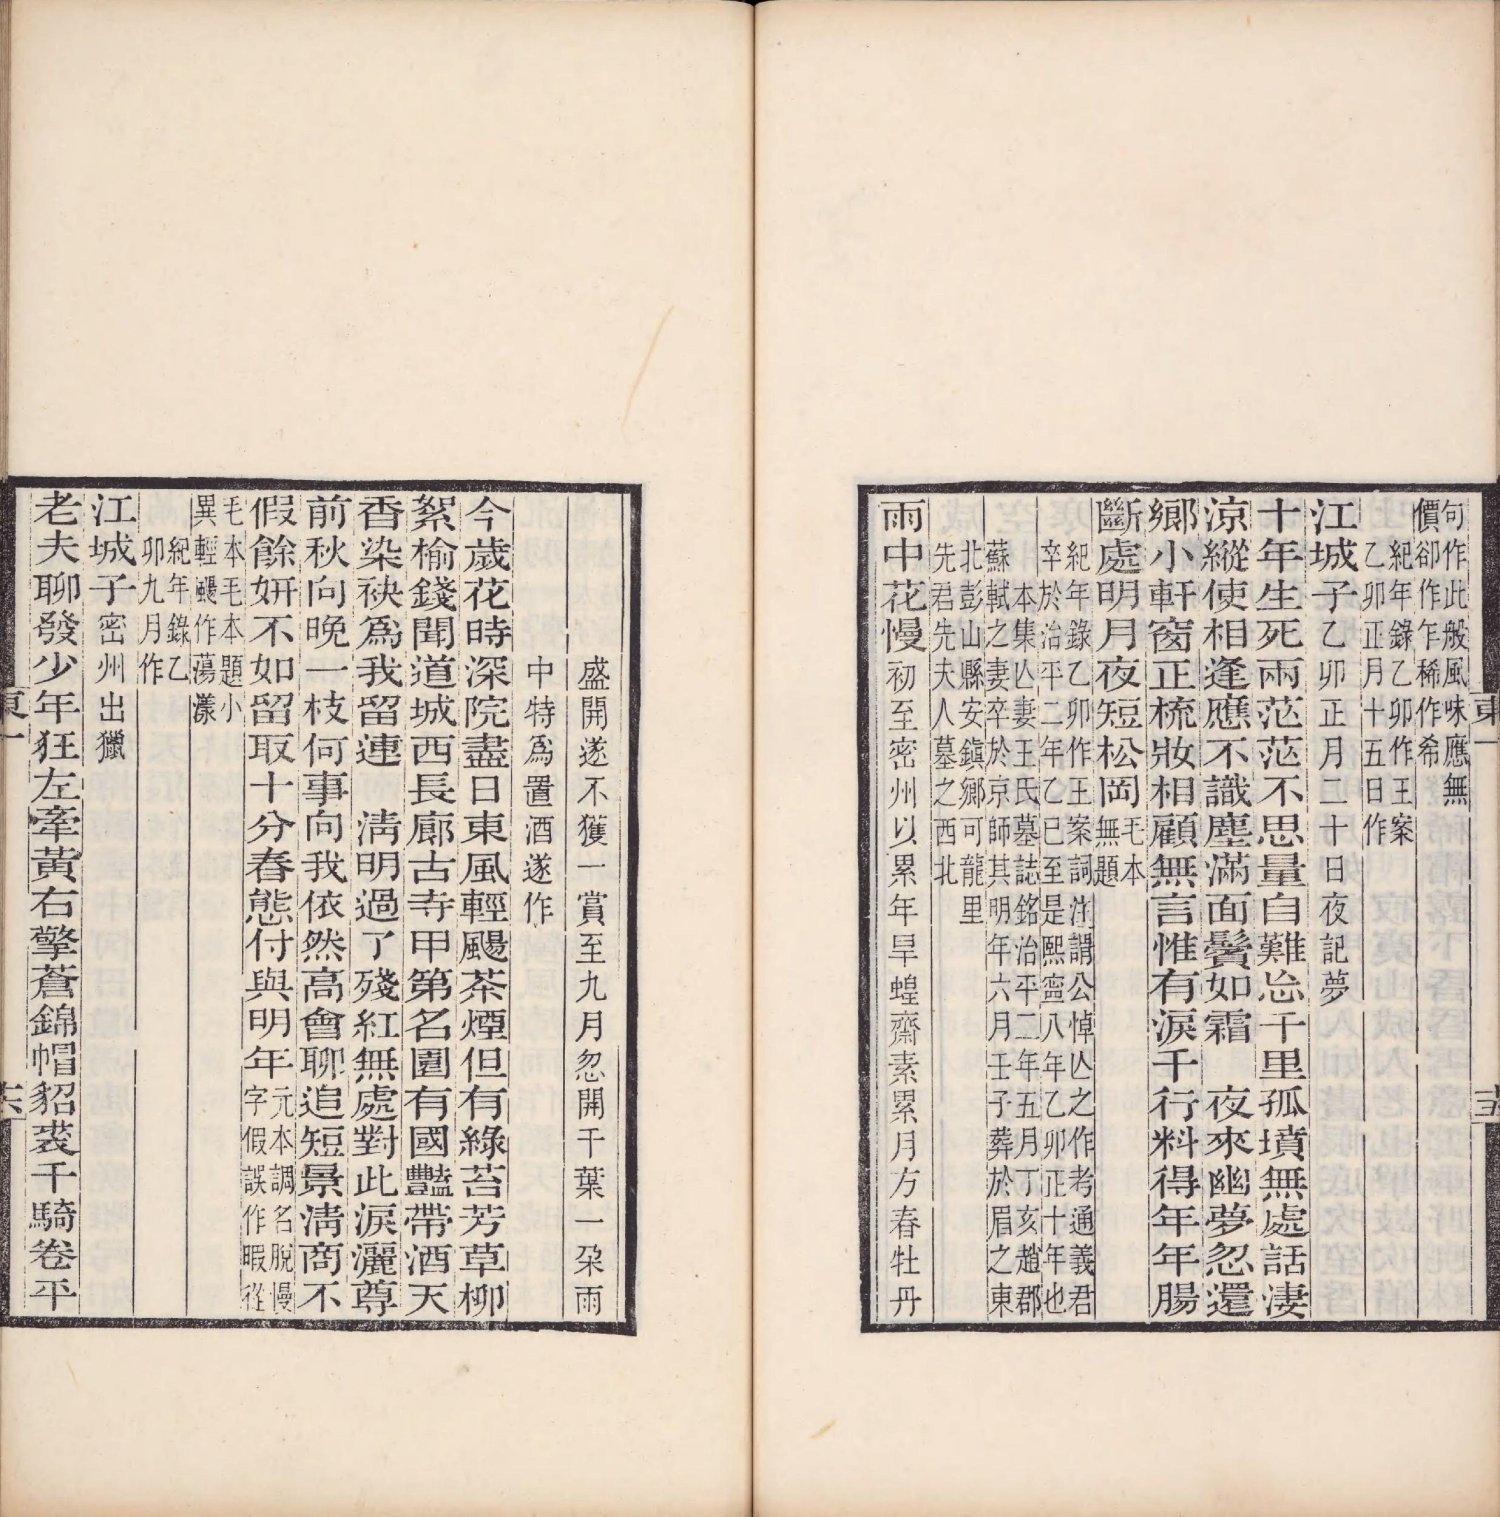 句作此般風味應無
價卻作乍稀作希
紀年錄乙卯作王案
乙卯正月十五日作
江城子乙卯正月二十日夜記夢
十年生死兩茫茫不思量自難忘千里孤墳無處話淒
涼縱使相逢應不識塵滿面鬢如霜　夜來幽夢忽還
鄉小軒窗正梳妝相顧無言惟有淚千行料得年年腸
斷處明月夜短松岡毛本
無題
紀年錄乙卯作王案詞注謂公悼亾之作考通義君
卒於治平二年乙巳至是熙寍八年乙卯正十年也
本集亾妻王氏墓誌銘治平二年五月丁亥趙郡
蘇軾之妻卒於京師其明年六月壬子葬於眉之東
北彭山縣安鎭鄉可龍里
先君先夫人墓之西北
雨中花慢初至密州以累年旱蝗齋素累月方春牡丹
東一
十五
盛開遂不獲一賞至九月忽開千葉一朶雨
中特爲置酒遂作
今歲花時深院盡日東風輕颺茶煙但有綠苔芳草柳
絮榆錢聞道城西長廊古寺甲第名園有國豔帶酒天
香染袂爲我留連　淸明過了殘紅無處對此淚灑尊
前秋向晚一枝何事向我依然高會聊追短景淸商不
假餘妍不如留取十分春態付與明年元本調名脫慢
字假誤作暇從
毛本毛本題小
異輕颺作蕩漾
紀年錄乙
卯九月作
江城子密州出獵
老夫聊發少年狂左牽黃右擎蒼錦帽貂裘千騎卷平
東一